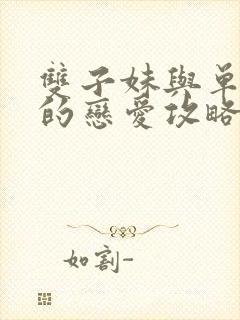 雙子妹與單
的戀愛攻略
如割-